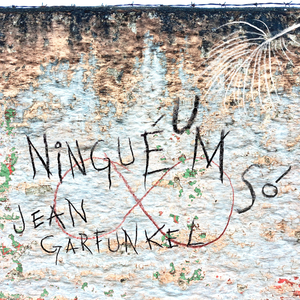 NiNGUÉ UM Só
JEAN
GARFUNKEL